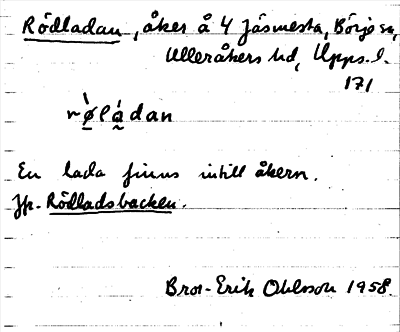 Rödladan, åker å 4 Jäsmesta, Börje sn,
Ulleråkers hd, Upps. l.
171
rø̀ládan
En lada finns intill åkern.
Jfr. Rödladsbacken.
Bror-Erik Ohlsson 1958.